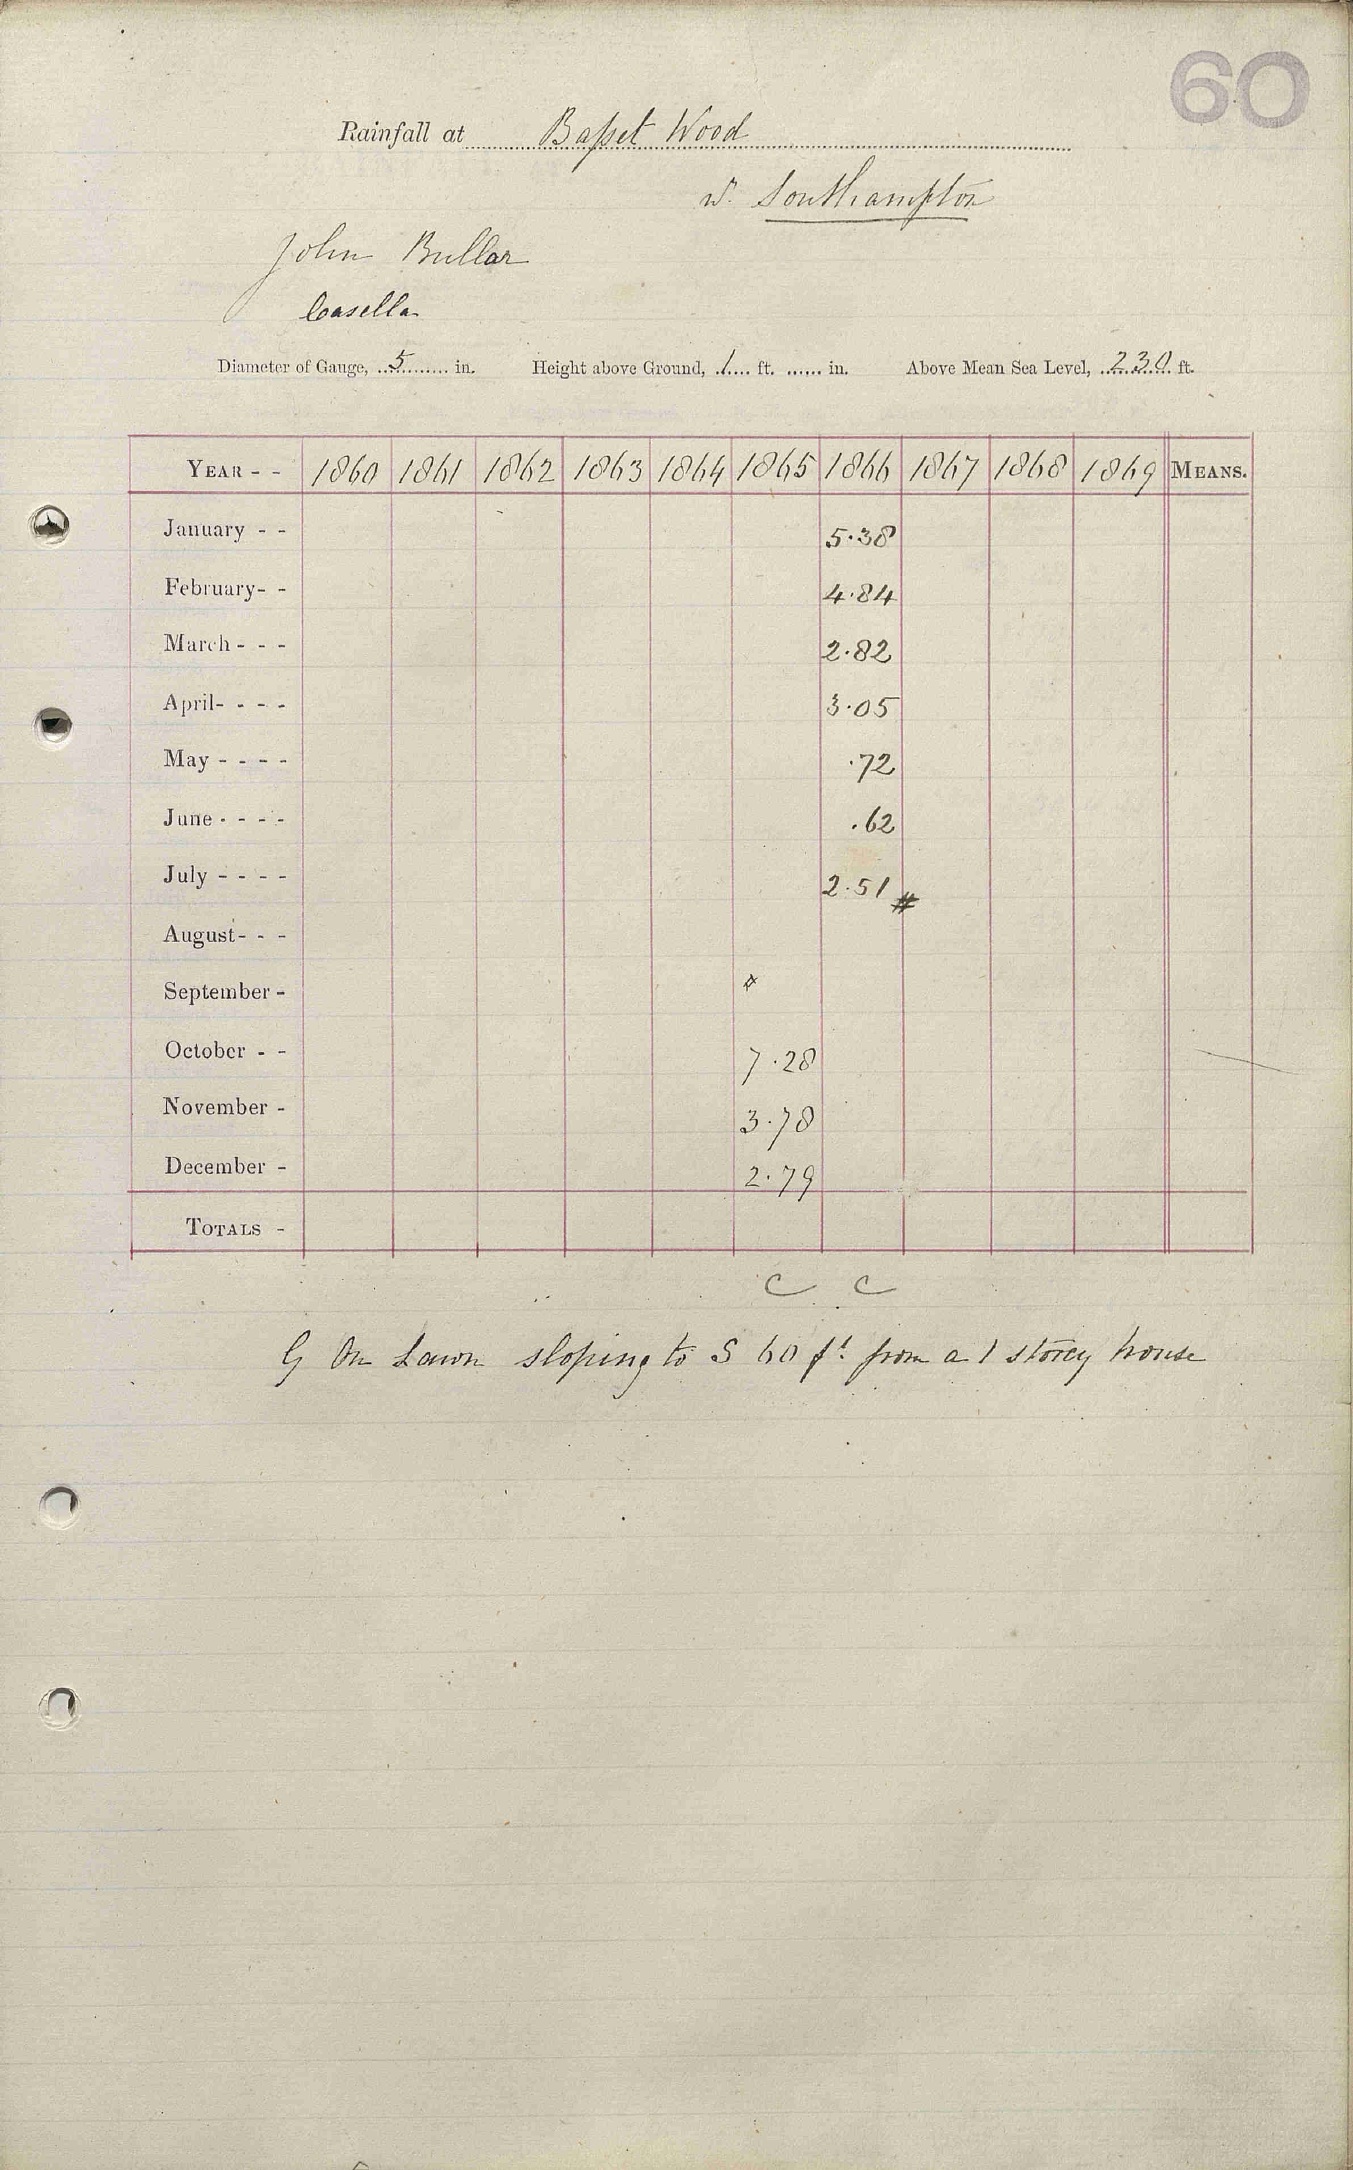 60
Rainfall at Baſset Wood
nr. Southampton
John Bullar
Casella
Diameter of Gauge, 5 in. Height above Ground, 1 ft. ...... in. Above Mean Sea Level, 230 ft.
YEAR - - 1860 1861 1862 1863 1864 1865 1866 1867 1868 1869 MEANS.
January - - 5.38
February - - 4.84
March - - - 2.82
April - - - - 3.05
May - - - - .72
June - - - - .62
July - - - - 2.51 #
August - - -
September -
October - - 7.28
November - 3.78
December - 2.79
TOTALS -
C C
G On Lawn sloping to S 60 ft. from a 1 storey house